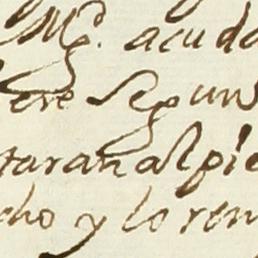 Mg.d acudo
ere segun
taran al pie
cho y lo rem